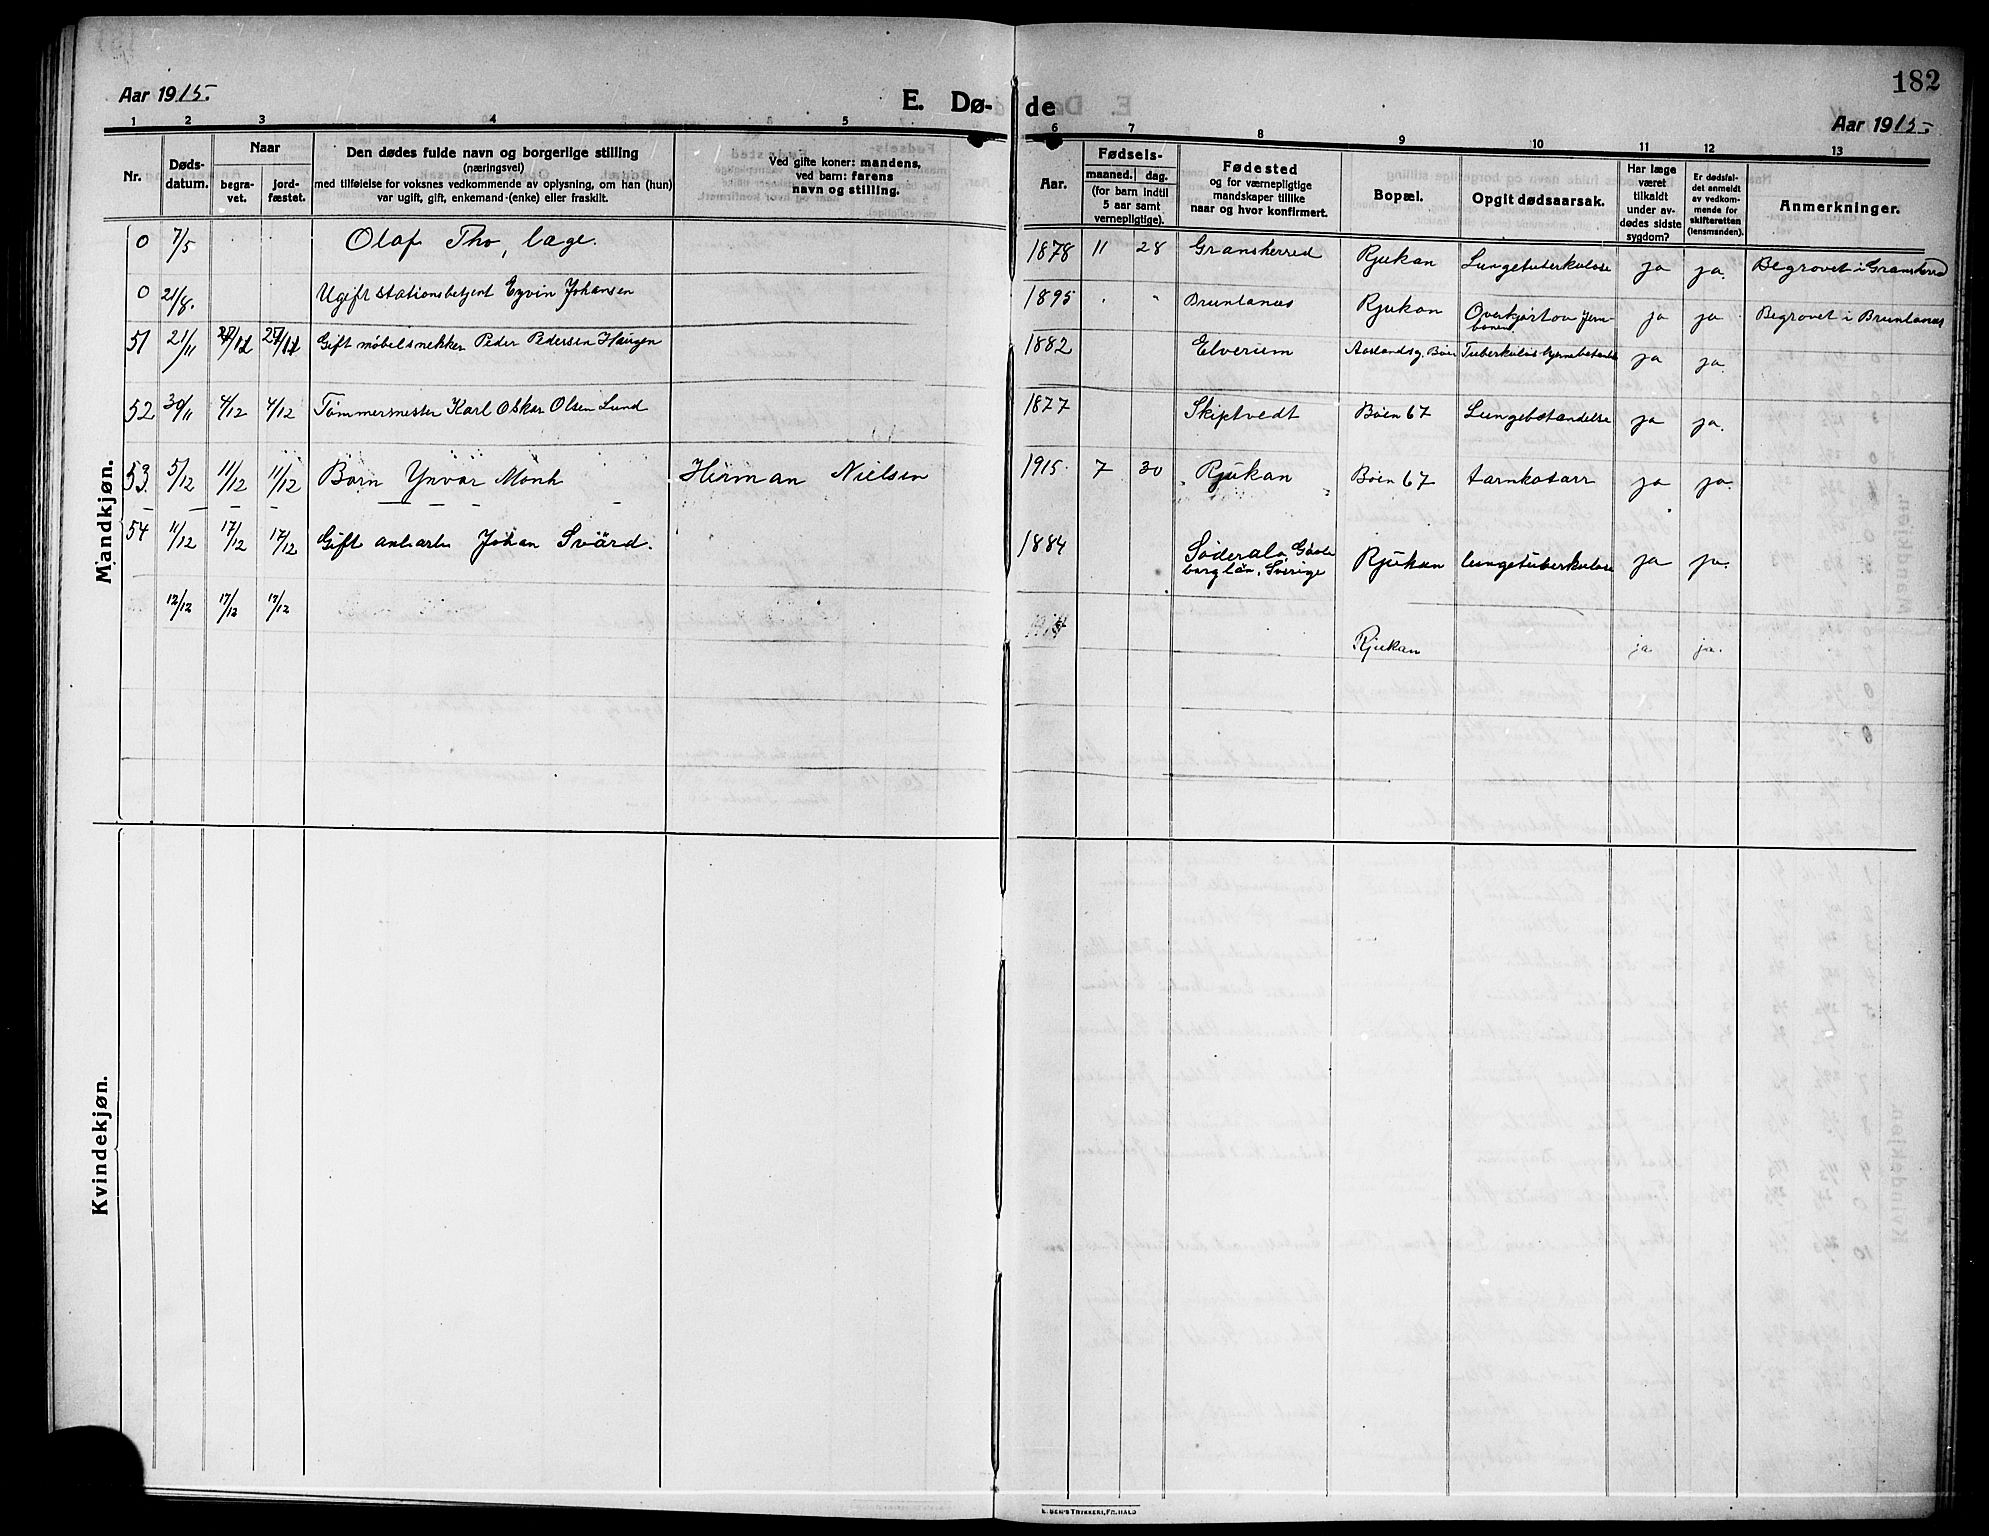 182
Aar 1915.
E. Dø- de
Aar 1915.
1 2 3 4 5 6 7 8 9 10 11 12 13
Nr.
Døds-
datum.
Naar
begra-
vet.
jord-
fæstet.
Den dødes fulde navn og borgerlige stilling
(næringsvei)
med tilføielse for voksnes vedkommende av oplysning, om han (hun)
var ugift, gift, enkemand-(enke) eller fraskilt.
Ved gifte koner: mandens,
ved barn: farens
navn og stilling.
Aar.
Fødsels-
maaned. dag.
(for barn indtil
5 aar samt
vernepligtige).
Fødested
og for værnepligtige
mandskaper tillike
naar og hvor konfirmert.
Bopæl.
Opgit dødsaarsak.
Har læge
været
tilkaldt
under av-
dødes sidste
sygdom?
Er dødsfal-
det anmeldt
av vedkom-
mende for
skifteretten
(lensmanden).
Anmerkninger.
Mandkjøn.
0 7/5 Olaf Tho, læge. 1878 11 28 Gransherred Rjukan Lungetuberkulose ja ja. Begravet i Gransherred
0 21/8. Ugift stationsbetjent Eyvin Johansen 1895 Brunlanes Rjukan Overkjørt av jern-
banen ja ja Begrovet i Brunlanes
51 21/11 27/11 27/11 Gift møbelsnekker Peder Pedersen Haugen 1882 Elverum Aaslandsg. Bøen ja ja
52 30/11 4/12 4/12 Tømmermester Karl Oskar Olsen Lund 1877 Skiptvedt Bøen 67 Lungebetændelse ja ja.
53. 5/12 11/12 11/12 Barn Ynvar Monh Herman Nielsen 1915. 7 30 Rjukan Bøen 67 tarmkatarr ja ja.
54 11/12 17/12 17/12 Gift anl.arb. Johan Svärd. 1884 Söderala, Gävle
borg län, Sverige Rjukan lungetuberkulose ja ja.
12/12 17/12 17/12 Rjukan ja ja.
Kvindekjøn.